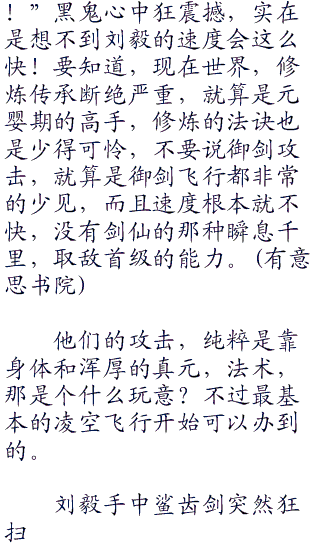 ！”黑鬼心中狂震撼，实在
是想不到刘毅的速度会这么
快！要知道，现在世界，修
炼传承断绝严重，就算是元
婴期的高手，修炼的法诀也
是少得可怜，不要说御剑攻
击，就算是御剑飞行都非常
的少见，而且速度根本就不
快，没有剑仙的那种瞬息千
里，取敌首级的能力。(有意
思书院)
他们的攻击，纯粹是靠
身体和浑厚的真元，法术，
那是个什么玩意？不过最基
本的凌空飞行开始可以办到
的。
刘毅手中鲨齿剑突然狂
扫